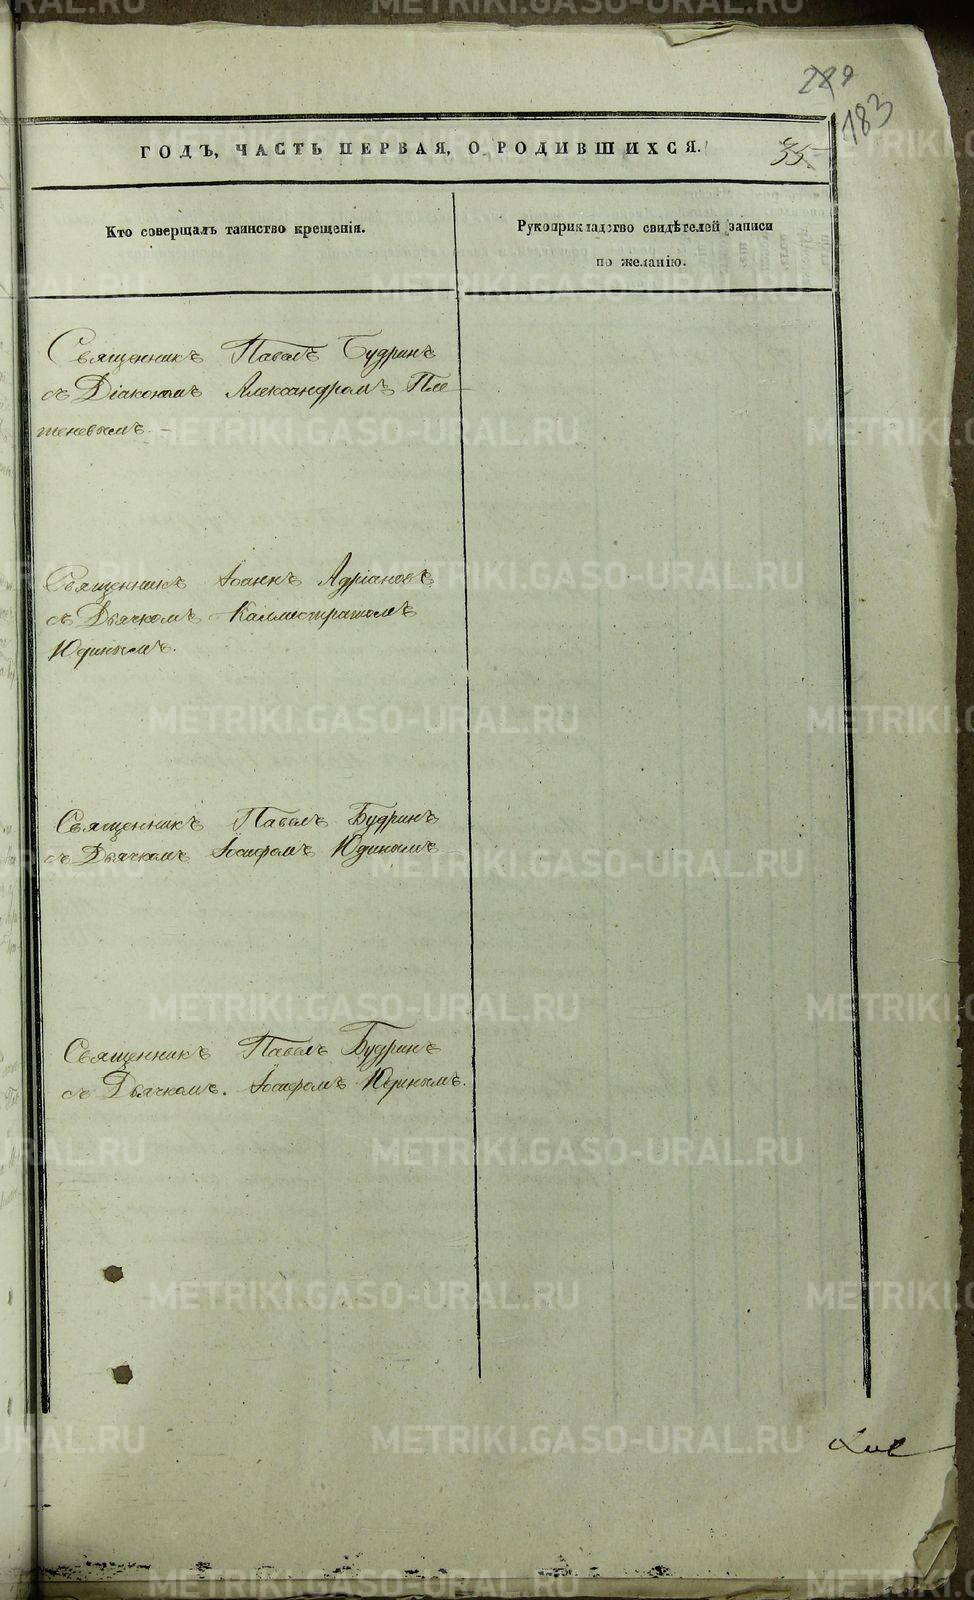 289
183
ГОДЪ, ЧАСТЬ ПЕРВАЯ, О РОДИВШИХСЯ.
35
Кто совершалъ таинство крещенія.
Рукоприкладство свидѣтелей записи
по желанію.
Священникъ Павелъ Будринъ
съ Діакономъ Александромъ Пле-
теневымъ.
Священникъ Іоаннъ Адріановъ
съ Дьячкомъ Каллистратомъ
Юдинымъ.
Священникъ Павелъ Будринъ
съ Дьячкомъ Іосифомъ Юдинымъ
Священникъ Павелъ Будринъ
съ Дьячкомъ. Іосифомъ Юдинымъ.
METRIKI.GASO-URAL.RU